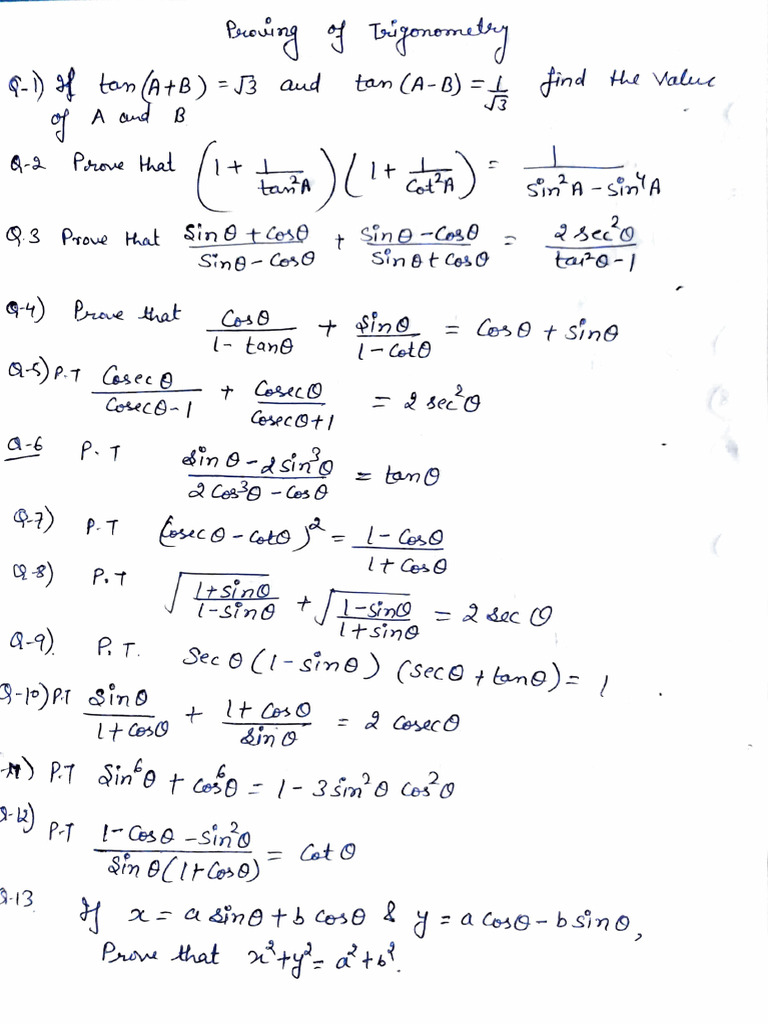 Proving of Trigonometry
Q-1) If tan(A+B) = √3 and tan(A-B) = 1/√3 find the value
of A and B
Q-2 Prove that (1 + 1/tan²A)(1 + 1/Cot²A) = 1/(Sin²A - Sin⁴A)
Q.3 Prove that (Sinθ + Cosθ)/(Sinθ - Cosθ) + (Sinθ - Cosθ)/(Sinθ + Cosθ) = 2 sec²θ/(tan²θ - 1)
Q-4) Prove that Cosθ/(1 - tanθ) + Sinθ/(1 - Cotθ) = Cosθ + Sinθ
Q-5) P.T Cosecθ/(Cosecθ - 1) + Cosecθ/(Cosecθ + 1) = 2 sec²θ
Q-6 P.T (Sinθ - 2 sin³θ)/(2 Cos³θ - Cosθ) = tanθ
Q-7) P.T (Cosecθ - Cotθ)² = (1 - Cosθ)/(1 + Cosθ)
Q-8) P.T √((1 + sinθ)/(1 - sinθ)) + √((1 - sinθ)/(1 + sinθ)) = 2 sec θ
Q-9) P.T. Sec θ (1 - sinθ) (secθ + tanθ) = 1
Q-10) P.T Sinθ/(1 + Cosθ) + (1 + Cosθ)/Sinθ = 2 Cosecθ
-11) P.T Sin⁶θ + cos⁶θ = 1 - 3 sin²θ cos²θ
Q-12) P.T (1 - Cosθ - Sin²θ)/(Sin θ(1 + Cosθ)) = Cot θ
Q-13 If x = a sinθ + b cosθ & y = a cosθ - b sinθ,
Prove that x² + y² = a² + b².